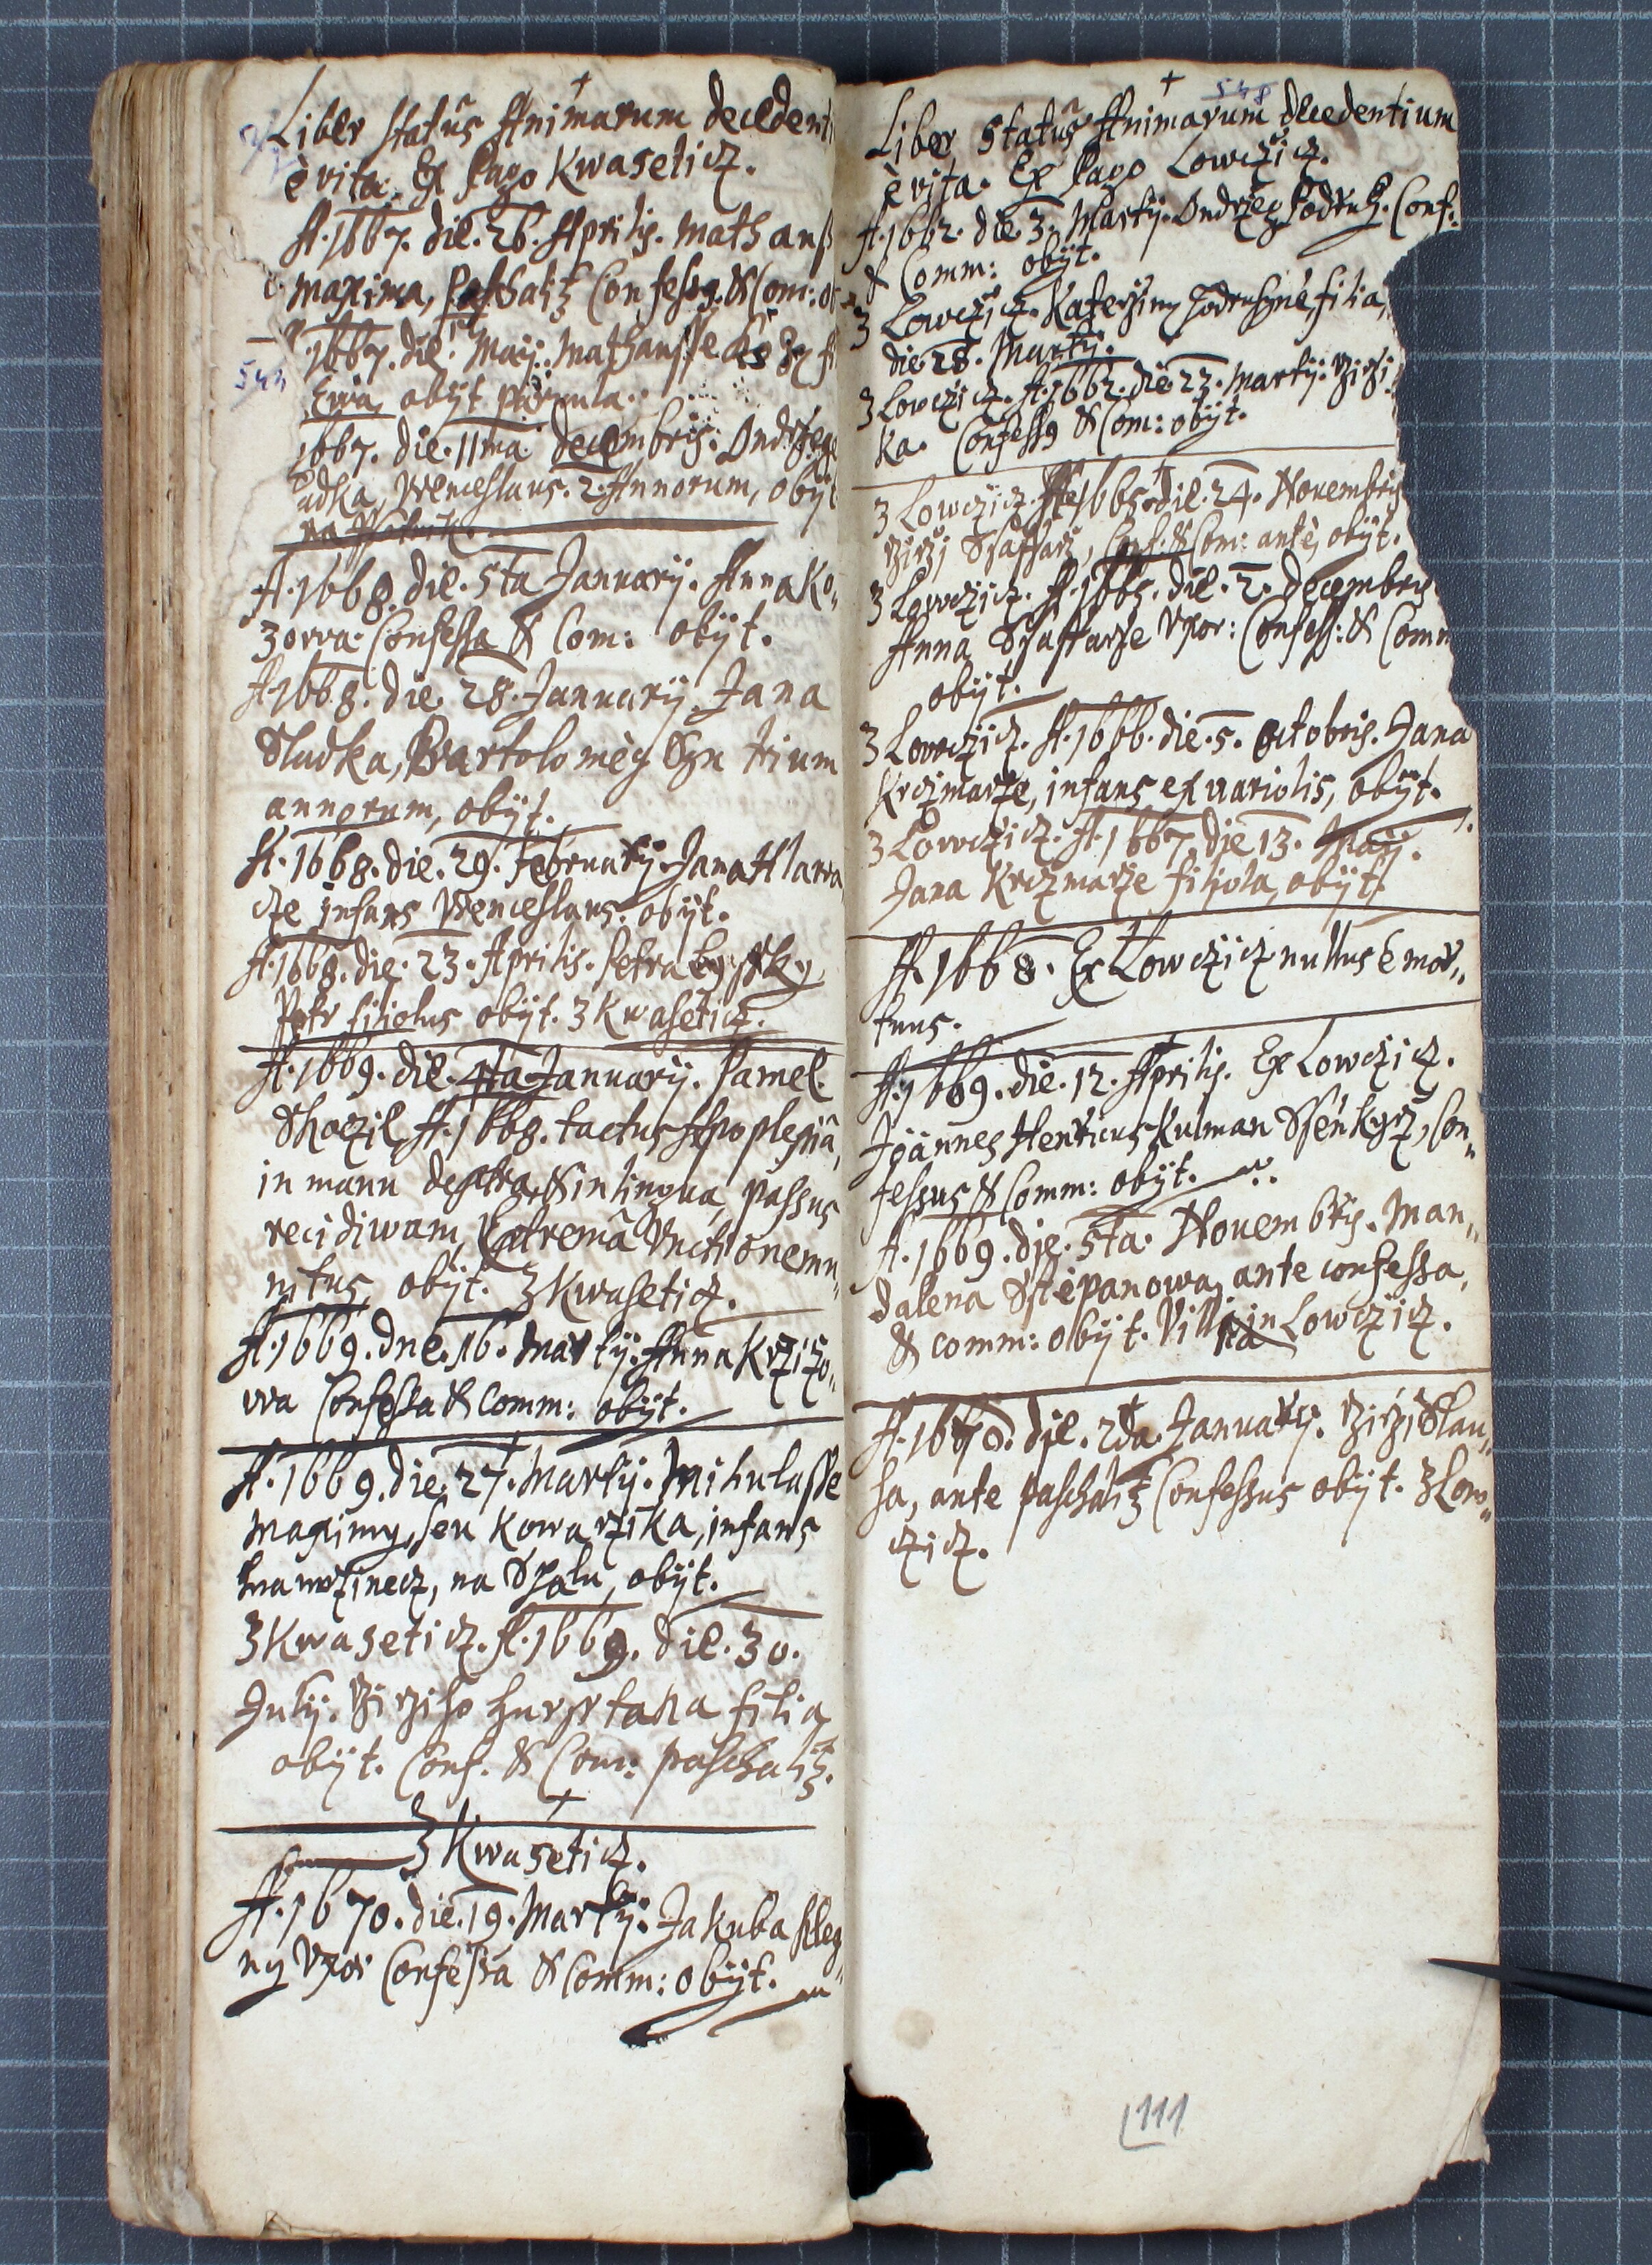 Liber statûs Animarum decedenti
è vita. Ex Pago Kwaseticz.
A. 1667. die. 26. Aprilis. Mathauss
Maxima, Paschalit Confess9. & Com: ob
1667. die Maij. Mathausse
Ewa, obijt parvula.
1667. die. 11ma decembris. Ondrzege
udka, Wenceslaus. 2. Annorum, obijt
A. 1668. die. 5ta Januarij. Anna Ko„
zowa. Confessa & Com: obijt.
A. 1668. die. 28. Januarij. Jana
Sludka, Bartolomèg Syn trium
annorum, obijt.
A. 1668. die. 29. Februarij. Jana Hlawa
cze infans Wenceslaus. obijt.
A. 1668. die. 23. Aprilis. Petra
Petr filiolus obijt. 3 Kwaseticz.
A. 1669. die. 4ta Januarij. Pawel
Skoczil, A. 1668. tactus Apoplexiâ,
in manu dextra, & in lingua, passus
recidiwam, Extremâ Unctionemu„
nitus, obijt. 3 Kwaseticz.
A. 1669. dne. 16. Martij. Anna Krziżo„
wa Confessa & Comm: obijt.
A. 1669. die. 27. Martij. Mikulasse
Maximy, seu Kowarzika, infans
Wawrzinecz, na Skalu, obijt.
3 Kwaseticz. A. 1669. die. 30.
Julij. Rzirziho filia
obijt. Conf. & Com: paschalit.
3 Kwaseticz.
A. 1670. die. 19. Martij. Jakuba Pleg„
ny Uxor Confessa & Comm: obijt.
548
Liber Statûs Animarum decedentium
è vita. Ex Pago Lowczicz.
A. 1662. die. 3. Martij. Ondrzeg Podruh. Conf:
& Comm: obijt.
3 Lowczicz. Katerziny Podruhyně, filia,
die 28. Martij.
3 Lowczicz. A. 1662. die 23. Martij. Rzirzi
ka. Confess9 & Com: obijt.
3 Lowczicz. A. 1665. die. 24. Nouembris
Rzirzi Ssaffarz, Conf: & Com: antè, obijt.
3 Lowczicz. A. 1665. die. 2. decembris
Anna Ssaffarze Uxor: Confess: & Comm
obijt.
3 Lowczicz. A. 1666. die. 5. octobris. Jana
Krczmarze, infans ex variolis, obijt.
3 Lowczicz. A. 1667. die 13. Maij.
Jana Krczmarze filiola, obijt.
A. 1668. Ex Lowczicz nullus emor„
tuus.
A. 1669. die. 12. Aprilis. Ex Lowczicz.
Joannes Henricus Kulman Ssenkyrz, Con„
fessus & Comm: obijt.
A. 1669. die. 5ta. Nouembris. Man„
dalena Sstèpanowa, ante confessa,
& comm: obijt. in Lowczicz.
A. 1670. die. 2da. Januarij. Rzirzi Slau„
sa, ante paschalit Confessus obijt. 3 Low„
czicz.
111